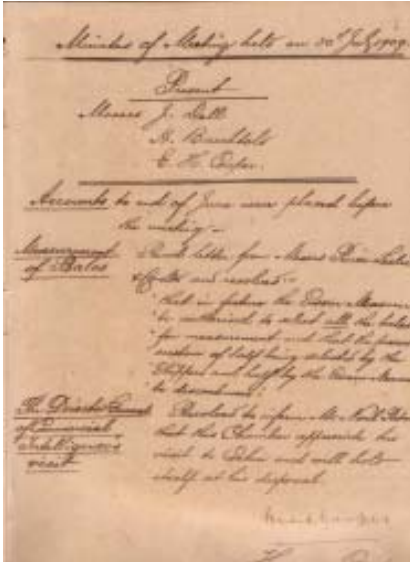 Minutes of Meeting held on 30th July 1909
Present
Messrs J. Dall
A.
E. H. Cooper.
Accounts to end of June were placed before
the meeting -
Measurement
of Bales
Read letter from Messrs
and resolved :-
that in future the
be authorised to select all the bales
for measurement and that the present
system of half being selected by the
Shipper and half by the
be discontinued.
The Director General
of Commercial
Intelligence's
visit
Resolved to inform Mr Noel
that this Chamber appreciate his
visit to and will hold
itself at his disposal.